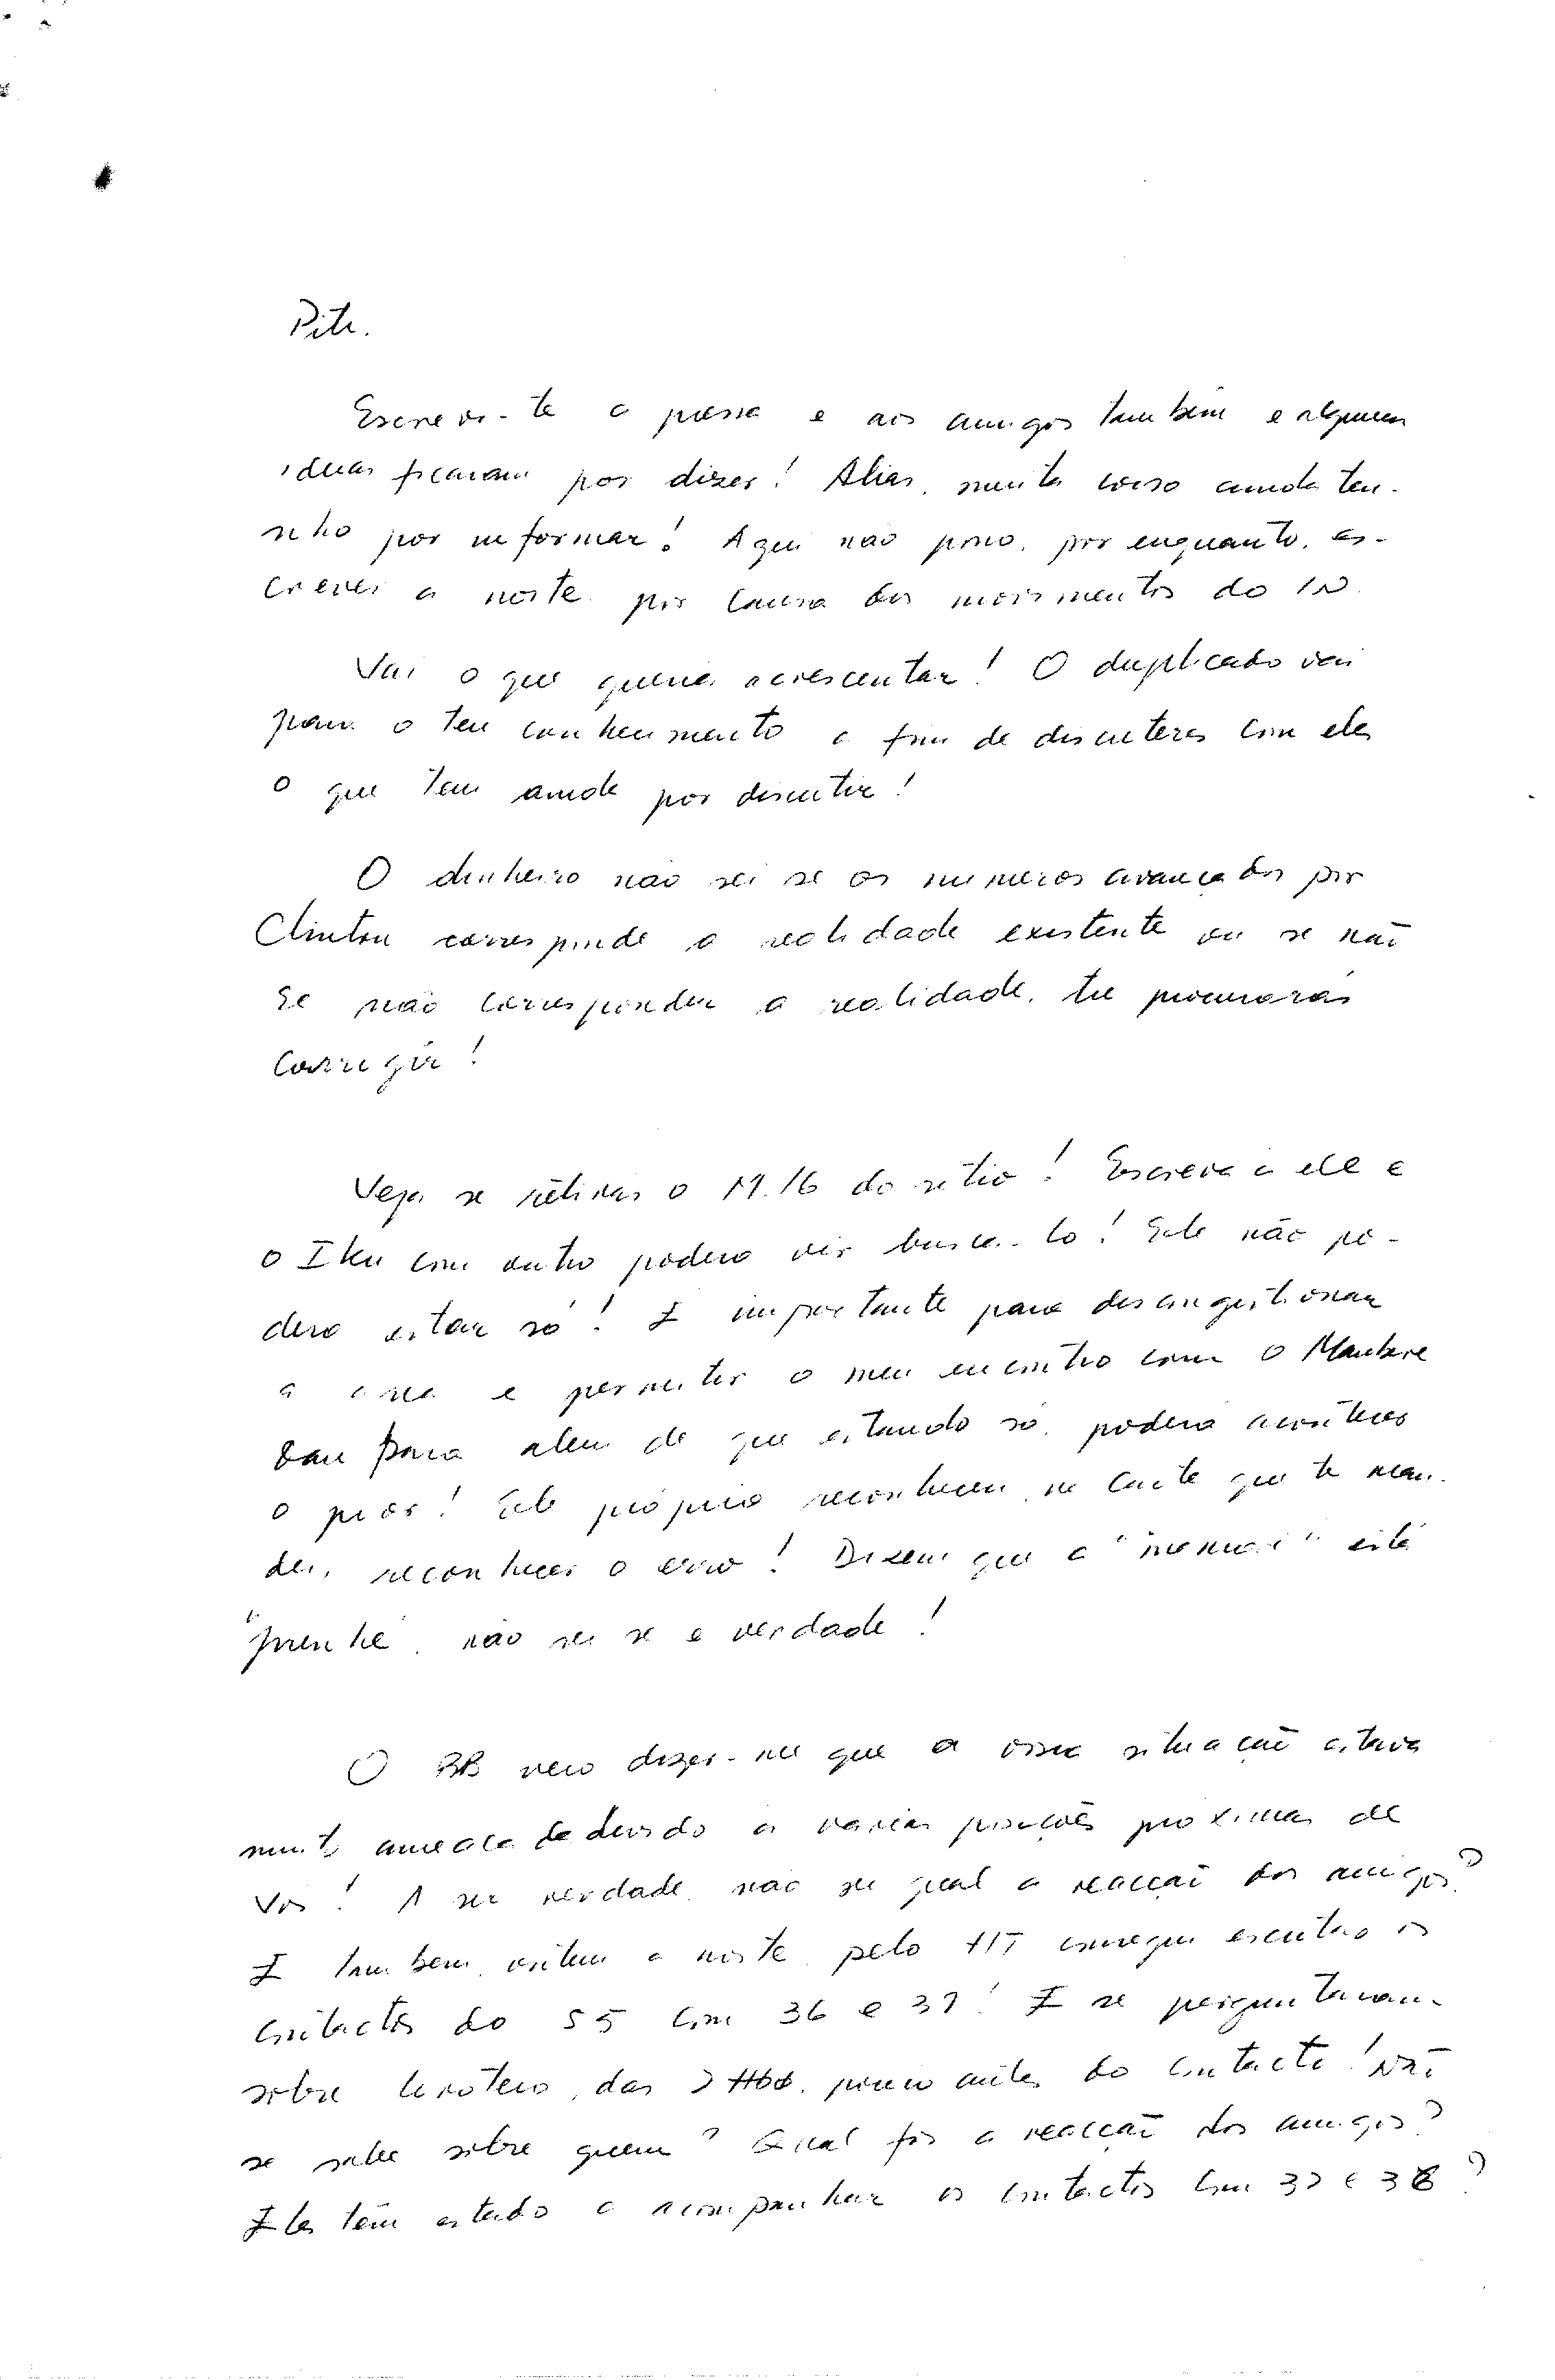 Pite.
Escrevi-te a pressa e aos amigos tambem e algumas
ideias ficaram por dizer! Alias, muita coisa ainda ten-
nho por informar! Aqui não posso, por enquanto, es-
crever a noite por causa dos movimentos do IN.
Vai o que queria acrescentar! O duplicado vai
para o teu conhecimento a fim de discuteres com eles
o que tem ainda por discutir!
O dinheiro não sei se os numeros avançados por
Clinton corresponde a realidade existente ou se não
Se não corresponder a realidade, tu procurarás
corregir!
Veja se retiras o M.16 do sitio! Escreva a ele e
o Iku com outro podera vir busca-lo! Ele não po-
dera estar só! I importante para descongestionar
a area e permitir o meu encontro com o Maubere
para alem de que estando só, podera acontecer
o pior! Ele proprio reconheceu na carta que te man-
dei, reconhecer o erro! Dizem que a
"prenhe, não sei se e verdade!
O BB veio dizer-me que a vossa situação estava
muito ameaçada devido a varias posições proximas de
Vos! A ser verdade não sei qual a reacção dos amigos?
I tambem, ontem a noite, pelo HT consegui escutar os
contactos do 55 com 36 e 37! I se perguntavam-
sobre das pouco antes do contacto! Não
se sabe sobre quem? Qual foi a reacção dos amigos?
Iles têm estado a acompanhar os contactos com 37 e 38?